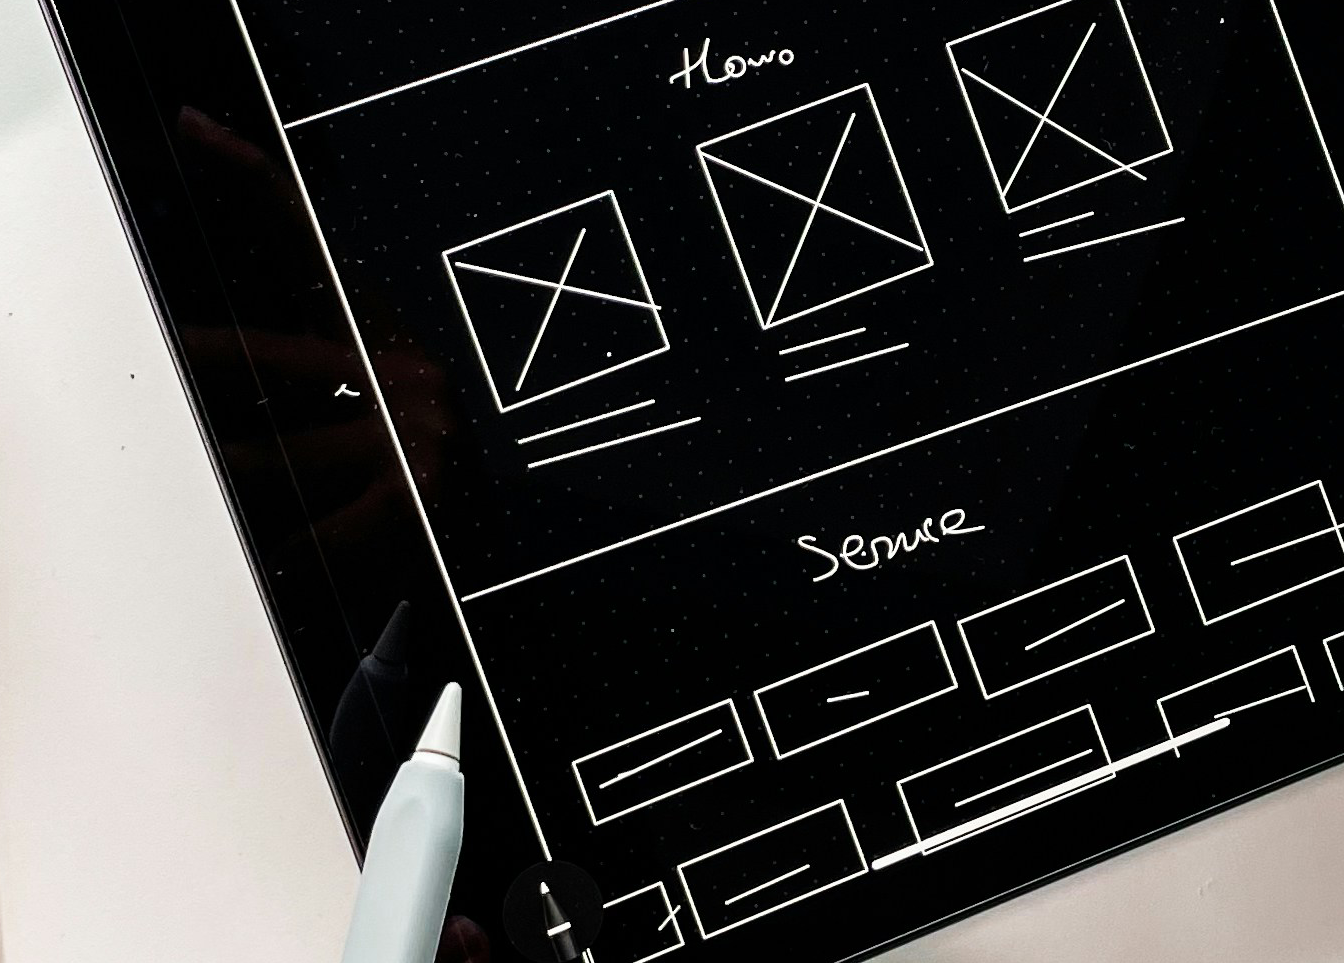 Home
Service